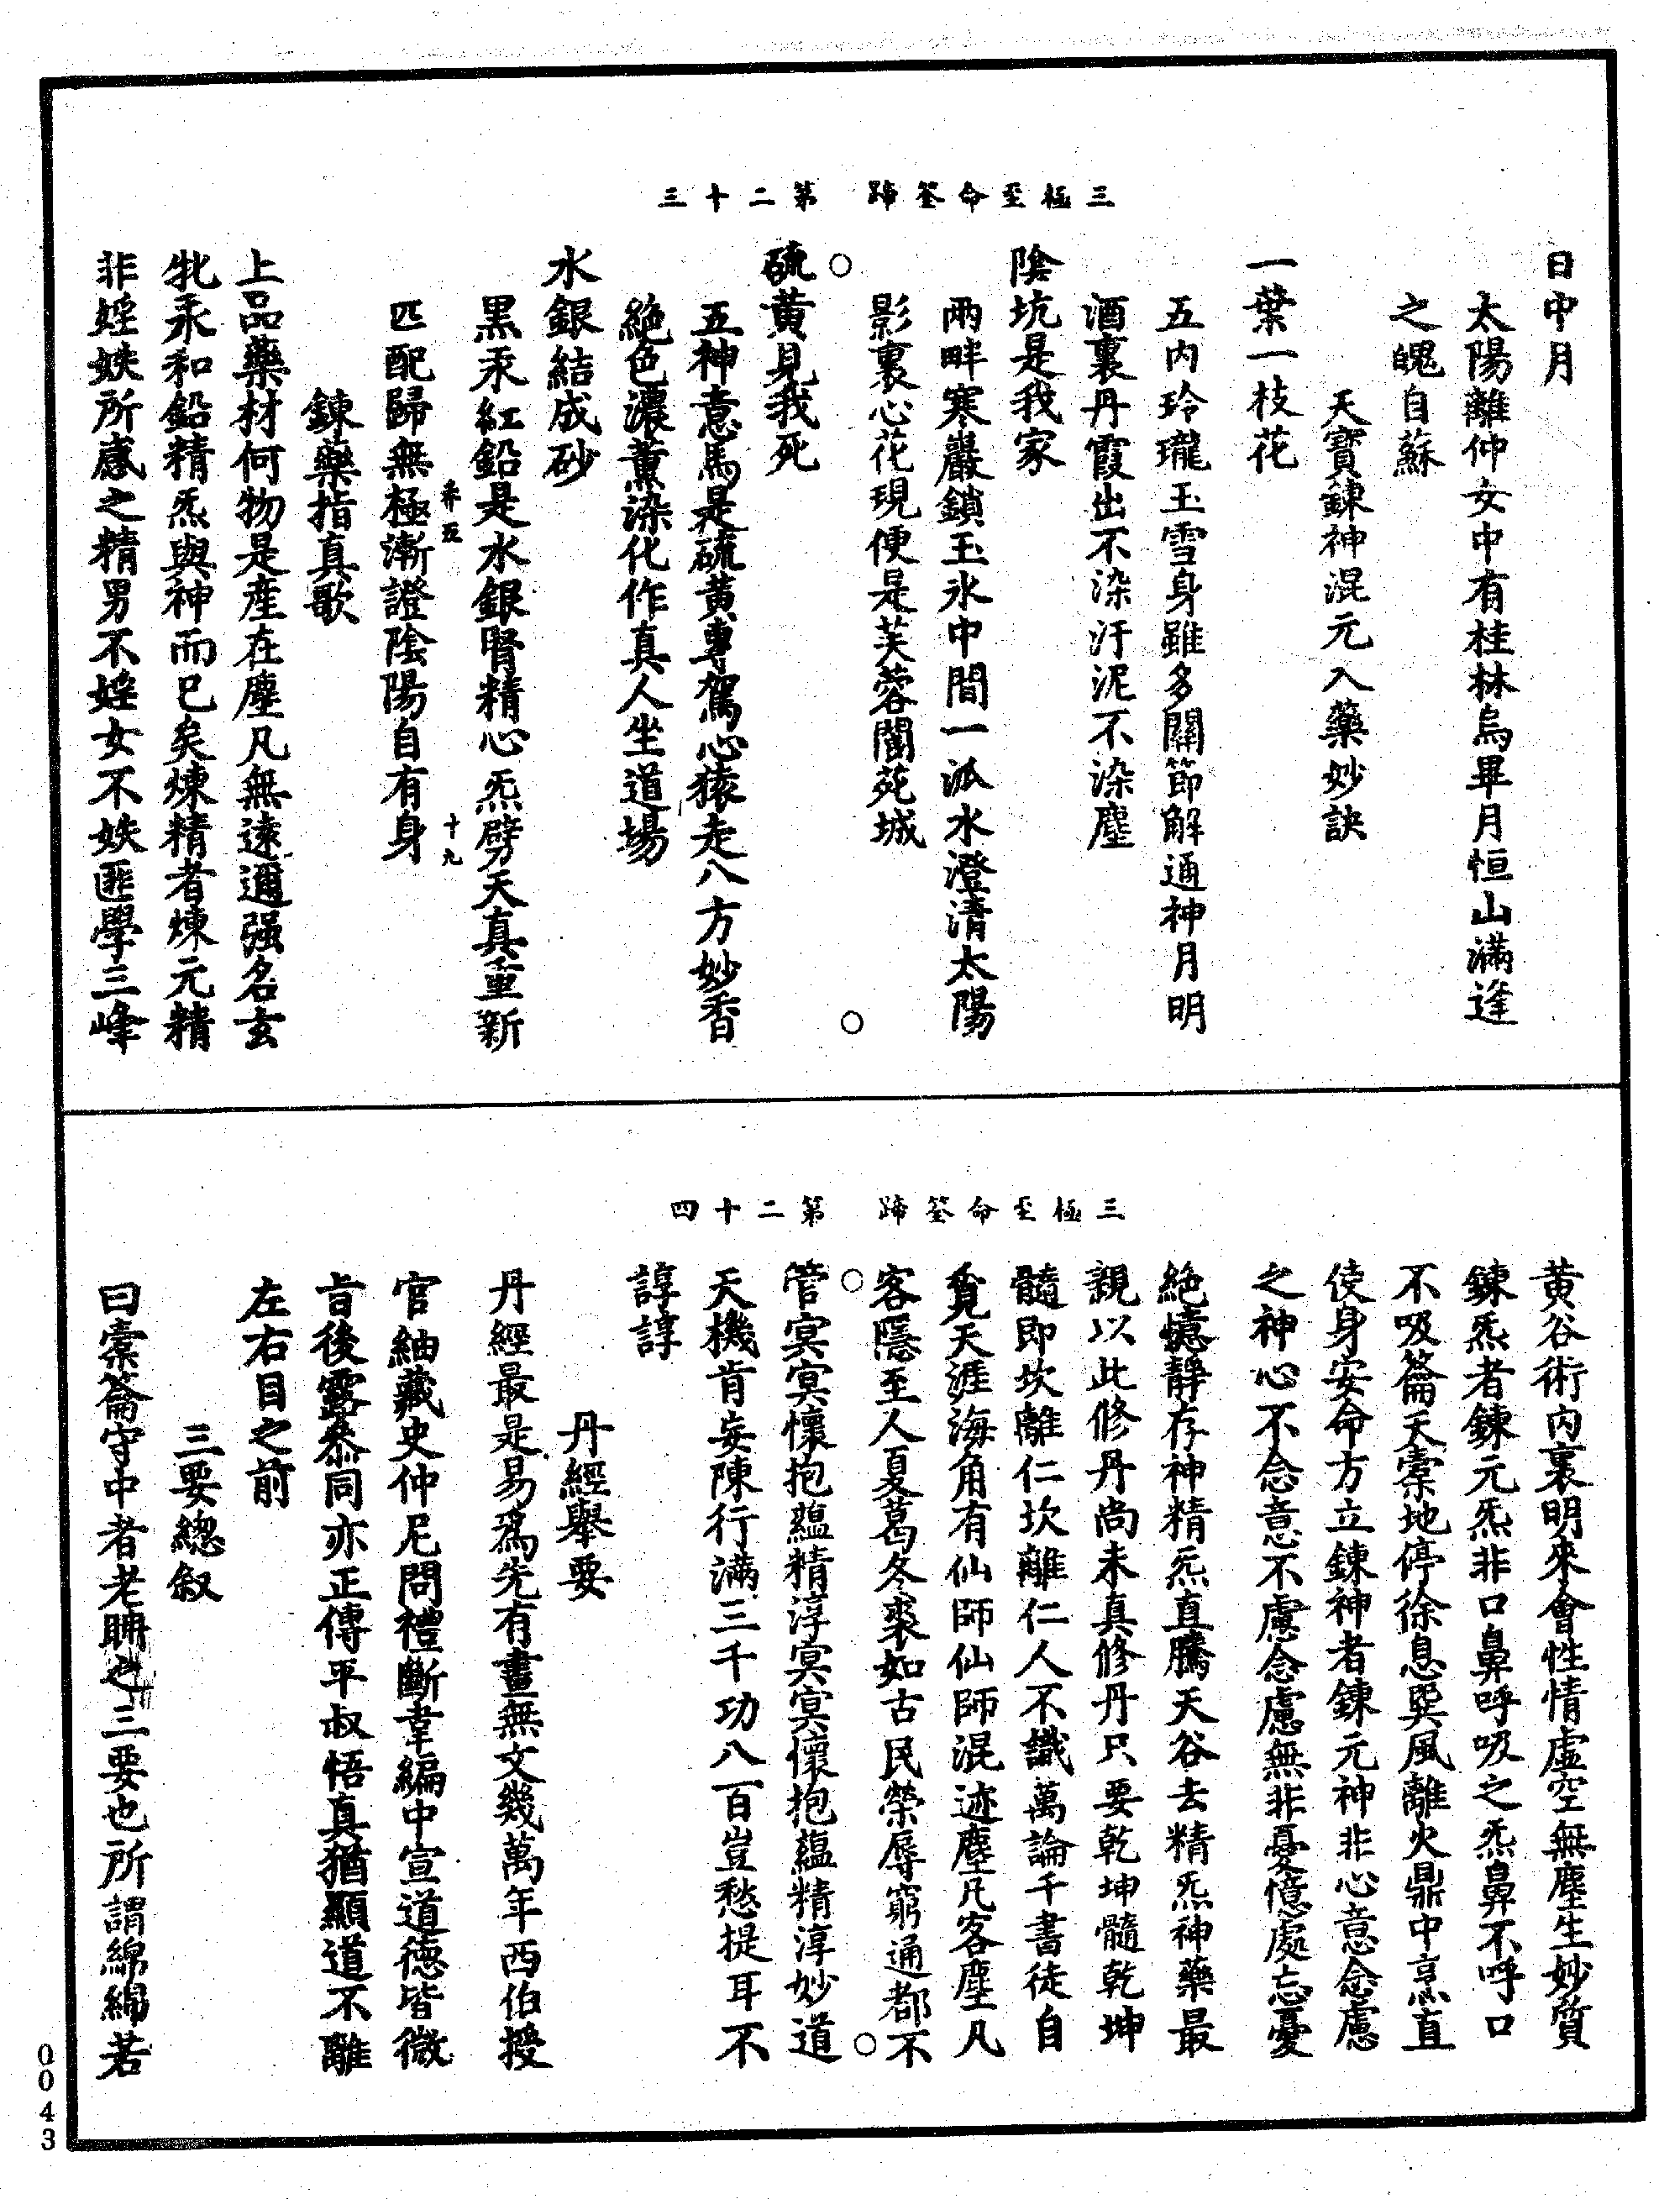 三極至命筌蹄　第二十三
日中月
太陽離仲女中有桂林烏畢月恒山滿逢
之魄自蘇
天寶鍊神混元入藥妙訣
一葉一枝花
五内玲瓏玉雪身雖多關節解通神月明
酒裏丹霞出不染汙泥不染塵
陰坑是我家
兩畔寒巖鎖玉氷中間一派水澄清太陽
影裏心花現便是芙蓉閬苑城
硫黄見我死
五神意馬是硫黄專駕心猿走八方妙香
絶色濃薰染化作真人坐道場
水銀結成砂
黑汞紅鉛是水銀腎精心炁劈天真重新
匹配歸無極漸證陰陽自有身
鍊藥指真歌
上品藥材何物是産在塵凡無遠邇强名玄
牝汞和鉛精炁與神而已矣煉精者煉元精
非婬妷所感之精男不婬女不妷匪學三峰
三極至命筌蹄　第二十四
黄谷術内裏明來會性情虛空無塵生妙質
鍊炁者鍊元炁非口鼻呼吸之炁鼻不呼口
不吸籥天橐地停徐息巽風離火鼎中烹直
使身安命方立鍊神者鍊元神非心意念慮
之神心不念意不慮念慮無非憂憶處忘憂
絶憶靜存神精炁直騰天谷去精炁神藥最
親以此修丹尚未真修丹只要乾坤髓乾坤
髓即坎離仁坎離仁人不識萬論千書徒自
覓天涯海角有仙師仙師混迹塵凡客塵凡
客隱至人夏葛冬裘如古民榮辱窮通都不
管㝠㝠懷抱蘊精淳㝠㝠懷抱蘊精淳妙道
天機肯妄陳行滿三千功八百豈愁提耳不
諄諄
丹經舉要
丹經最是易爲先有畫無文幾萬年西伯授
官紬藏史仲尼問禮斷韋編中宣道德皆微
旨後露叅同亦正傳平叔悟真猶顯道不離
左右目之前
三要總叙
曰橐籥守中者老聃之三要也所謂綿綿若
0043